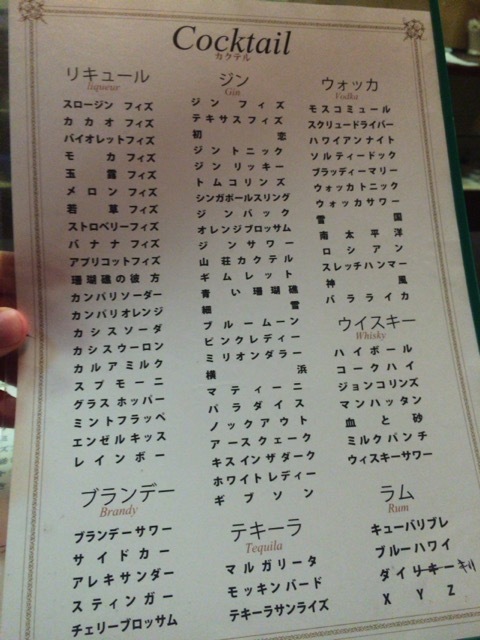 Cocktail
カクテル
リキュール
liqueur
スロージン フィズ
カカオ フィズ
バイオレットフィズ
モカ フィズ
玉露 フィズ
メロン フィズ
若草 フィズ
ストロベリーフィズ
バナナ フィズ
アプリコットフィズ
珊瑚礁の彼方
カンパリソーダー
カンパリオレンジ
カシスソーダ
カシスウーロン
カルアミルク
スプモーニ
グラスホッパー
ミントフラッペ
エンゼルキッス
レインボー
ブランデー
Brandy
ブランデーサワー
サイドカー
アレキサンダー
スティンガー
チェリーブロッサム
ジン
Gin
ジンフィズ
テキサスフィズ
初恋
ジントニック
ジンリッキー
トムコリンズ
シンガポールスリング
ジンバック
オレンジブロッサム
ジンサワー
山荘カクテル
ギムレット
青い珊瑚礁
細雪
ブルームーン
ピンクレディー
ミリオンダラー
横浜
マティーニ
パラダイス
ノックアウト
アースクェーク
キスインザダーク
ホワイトレディー
ギブソン
テキーラ
Tequila
マルガリータ
モッキンバード
テキーラサンライズ
ウォッカ
Vodka
モスコミュール
スクリュードライバー
ハワイアンナイト
ソルティードック
ブラッディーマリー
ウォッカトニック
ウォッカサワー
雪国
南太平洋
ロシアン
スレッチハンマー
神風
バラライカ
ウイスキー
Whisky
ハイボール
コークハイ
ジョンコリンズ
マンハッタン
血と砂
ミルクパンチ
ウィスキーサワー
ラム
Rum
キューバリブレ
ブルーハワイ
ダイリキー
X Y Z